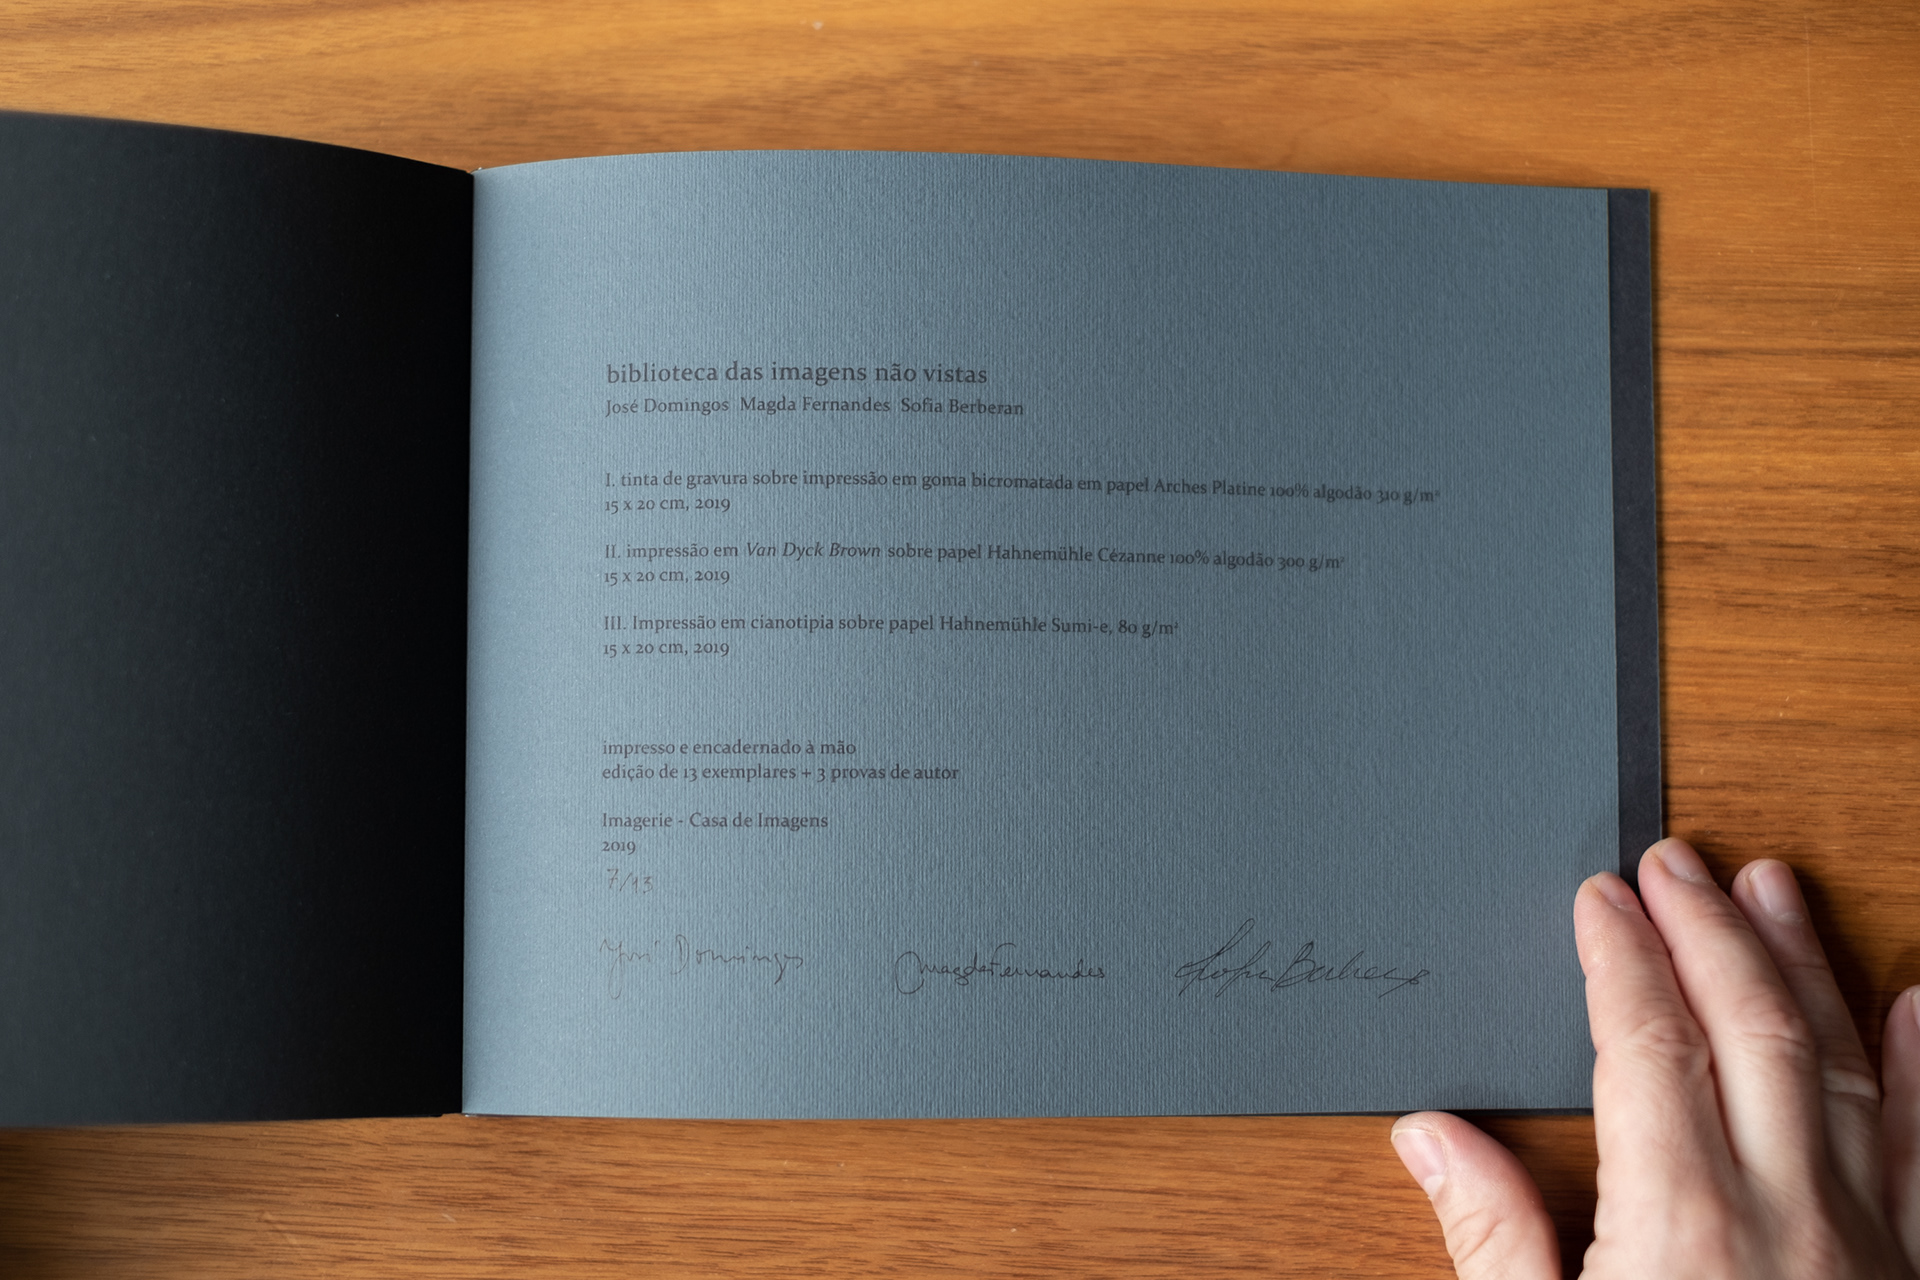 biblioteca das imagens não vistas
José Domingos Magda Fernandes Sofia Berberan
I. tinta de gravura sobre impressão em goma bicromatada em papel Arches Platine 100% algodão 310 g/m²
15 x 20 cm, 2019
II. impressão em Van Dyck Brown sobre papel Hahnemühle Cézanne 100% algodão 300 g/m²
15 x 20 cm, 2019
III. Impressão em cianotipia sobre papel Hahnemühle Sumi-e, 80 g/m²
15 x 20 cm, 2019
impresso e encadernado à mão
edição de 13 exemplares + 3 provas de autor
Imagerie - Casa de Imagens
2019
7/13
José Domingos Magda Fernandes Sofia Berberan